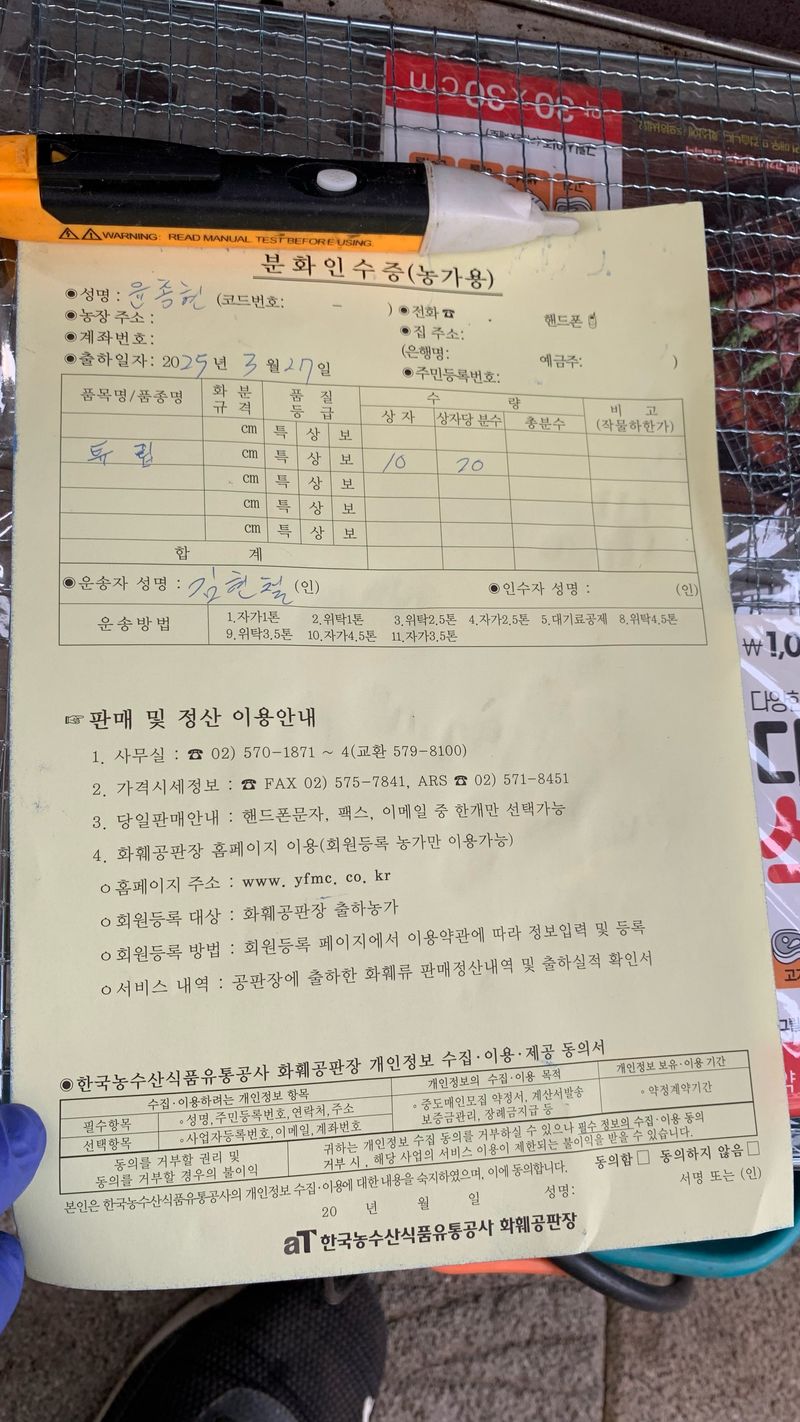 약 30 x 30 cm
WARNING: READ MANUAL TEST BEFORE USING.
분화인수증(농가용)
◉성명 : 윤종현 (코드번호: － )
◉전화☎ 핸드폰
◉농장 주소 :
◉집 주소:
◉계좌번호:
(은행명: 예금주: )
◉출하일자: 2025년 3월 27일
◉주민등록번호:
품목명/품종명 화분규격 품질등급 수량 비고
상자 상자당 분수 총분수 (작물하한가)
cm 특 상 보
튜립 cm 특 상 보 10 20
cm 특 상 보
cm 특 상 보
cm 특 상 보
합 계
◉운송자 성명 : 김현철 (인) ◉인수자 성명 : (인)
운송방법 1.자가1톤 2.위탁1톤 3.위탁2.5톤 4.자가2.5톤 5.대기료공제 8.위탁4.5톤
9.위탁3.5톤 10.자가4.5톤 11.자가3.5톤
☞판매 및 정산 이용안내
1. 사무실 : ☎ 02) 570-1871 ~ 4(교환 579-8100)
2. 가격시세정보 : ☎ FAX 02) 575-7841, ARS ☎ 02) 571-8451
3. 당일판매안내 : 핸드폰문자, 팩스, 이메일 중 한개만 선택가능
4. 화훼공판장 홈페이지 이용(회원등록 농가만 이용가능)
○홈페이지 주소 : www. yfmc. co. kr
○회원등록 대상 : 화훼공판장 출하농가
○회원등록 방법 : 회원등록 페이지에서 이용약관에 따라 정보입력 및 등록
○서비스 내역 : 공판장에 출하한 화훼류 판매정산내역 및 출하실적 확인서
◉한국농수산식품유통공사 화훼공판장 개인정보 수집·이용·제공 동의서
수집·이용하려는 개인정보 항목 개인정보의 수집·이용 목적 개인정보 보유·이용 기간
필수항목 ◦성명, 주민등록번호, 연락처, 주소 ◦중도매인모집 약정서, 계산서발송 ◦약정계약기간
선택항목 ◦사업자등록번호, 이메일, 계좌번호 보증금관리, 장례금지급 등
동의를 거부할 권리 및 귀하는 개인정보 수집 동의를 거부하실 수 있으나 필수 정보의 수집·이용 동의
동의를 거부할 경우의 불이익 거부 시 , 해당 사업의 서비스 이용이 제한되는 불이익을 받을 수 있습니다.
본인은 한국농수산식품유통공사의 개인정보 수집·이용에 대한 내용을 숙지하였으며, 이에 동의합니다. 동의함□ 동의하지 않음□
20 년 월 일 성명: 서명 또는 (인)
aT 한국농수산식품유통공사 화훼공판장
₩1,0
다양한